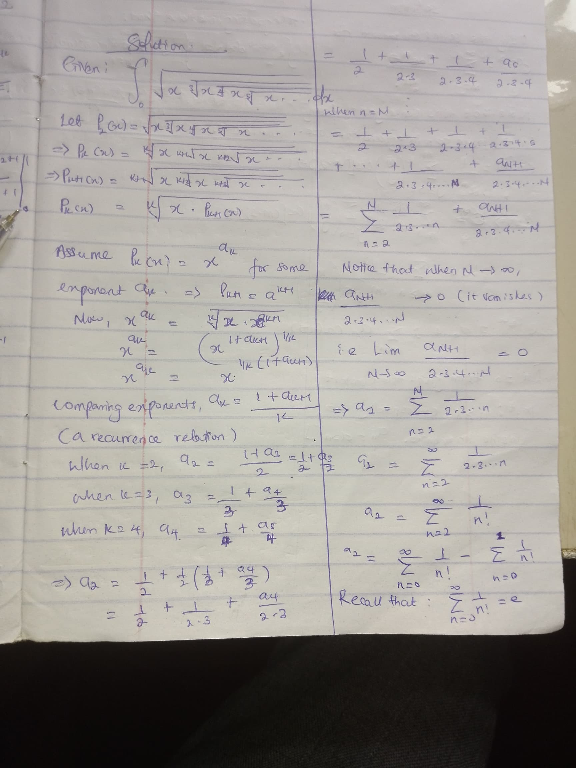 Solution.
Given: ∫₀ √x ∛x ∜x ⁵√x ... dx
Let P₂(x) = √x ∛x ∜x ⁵√x ...
⇒ Pₖ(x) = ᵏ√x ᵏ⁺¹√x ᵏ⁺²√x ...
⇒ Pₖ₊₁(x) = ᵏ⁺¹√x ᵏ⁺²√x ᵏ⁺³√x ...
Pₖ(x) = ᵏ√x . Pₖ₊₁(x)
Assume Pₖ(x) = x^aₖ for some
exponent aₖ. ⇒ Pₖ₊₁ = a^k+1
Now, x^aₖ = ᵏ√x . x^aₖ₊₁
x^aₖ = (x^1+aₖ₊₁)^1/k
x^aₖ = x^1/k (1+aₖ₊₁)
Comparing exponents, aₖ = (1 + aₖ₊₁)/k
(a recurrence relation)
When k = 2, a₂ = (1+a₃)/2 = 1/2 + a₃/2
when k = 3, a₃ = 1/3 + a₄/3
when k = 4, a₄ = 1/4 + a₅/4
⇒ a₂ = 1/2 + 1/2 (1/3 + a₄/3)
= 1/2 + 1/2.3 + a₄/2.3
= 1/2 + 1/2.3 + 1/2.3.4 + a₅/2.3.4
when n = N
= 1/2 + 1/2.3 + 1/2.3.4 + 1/2.3.4.5
+ ... + 1/2.3.4...N + aN+1/2.3.4...N
= N Σ n=2 1/2.3...n + aN+1/2.3.4...N
Notice that when N → ∞,
aN+1/2.3.4...N → 0 (it vanishes)
i.e Lim N→∞ aN+1/2.3.4...N = 0
⇒ a₂ = N Σ n=2 1/2.3...n
a₂ = ∞ Σ n=2 1/2.3...n
a₂ = ∞ Σ n=2 1/n!
a₂ = ∞ Σ n=0 1/n! − 1 Σ n=0 1/n!
Recall that : ∞ Σ n=0 1/n! = e